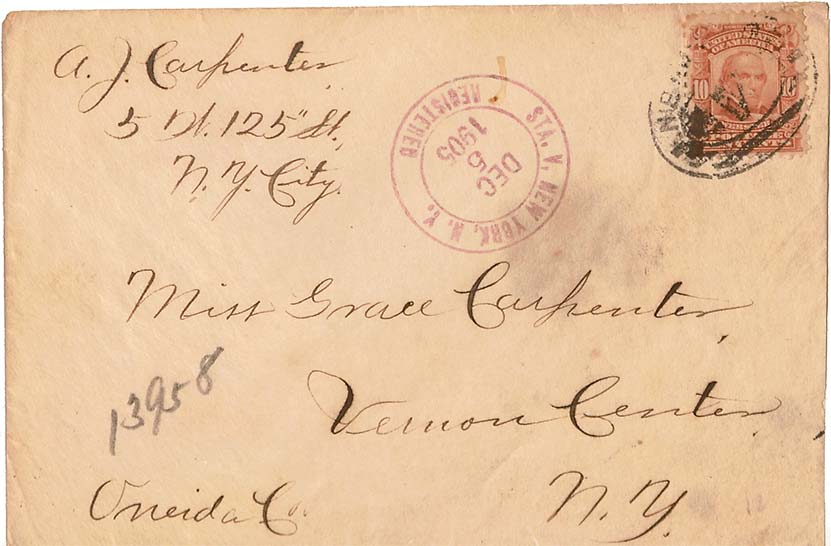 A. J. Carpenter
5 W. 125" St.
N. Y. City.
REGISTERED
STA. V. NEW YORK, N. Y.
DEC
6
1905
UNITED STATES
OF AMERICA
10 10
Miss Grace Carpenter,
13958
Vernon Center,
Oneida Co.
N. Y.